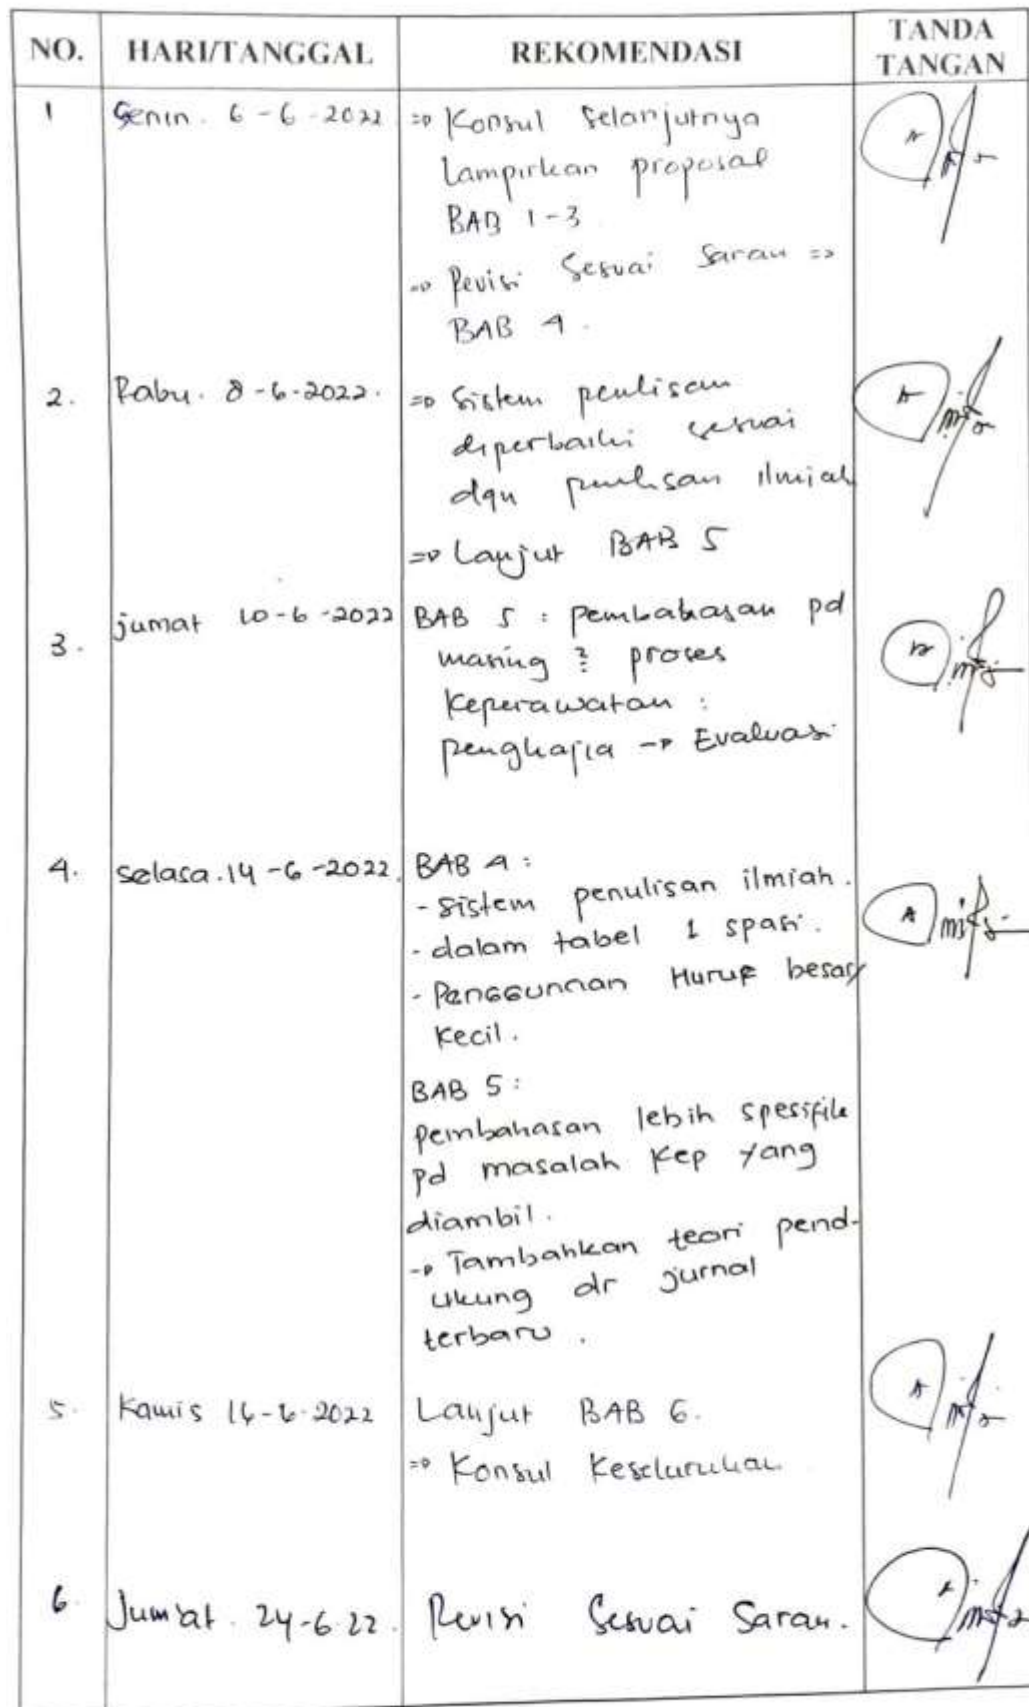 NO. HARI/TANGGAL REKOMENDASI TANDA TANGAN
1 Senin. 6-6-2022 => Konsul Selanjutnya
Lampirkan proposal
BAB 1-3
=> Revisi Sesuai Saran =>
BAB 4.
2. Rabu. 8-6-2022. => Sistem penulisan
diperbaiki sesuai
dgn penulisan ilmiah
=> Lanjut BAB 5
3. jumat 10-6-2022 BAB 5 : pembahasan pd
masing 2 proses
Keperawatan :
pengkajia -> Evaluasi
4. selasa.14-6-2022. BAB 4 :
- Sistem penulisan ilmiah.
- dalam tabel 1 spasi.
- Penggunnan Huruf besar/
Kecil.
BAB 5 :
pembahasan lebih spesifik
pd masalah Kep yang
diambil.
-> Tambahkan teori pend-
ukung dr jurnal
terbaru.
5. Kamis 16-6-2022 Lanjut BAB 6.
=> Konsul Keseluruhan
6. Jum'at. 24-6-22. Revisi Sesuai Saran.